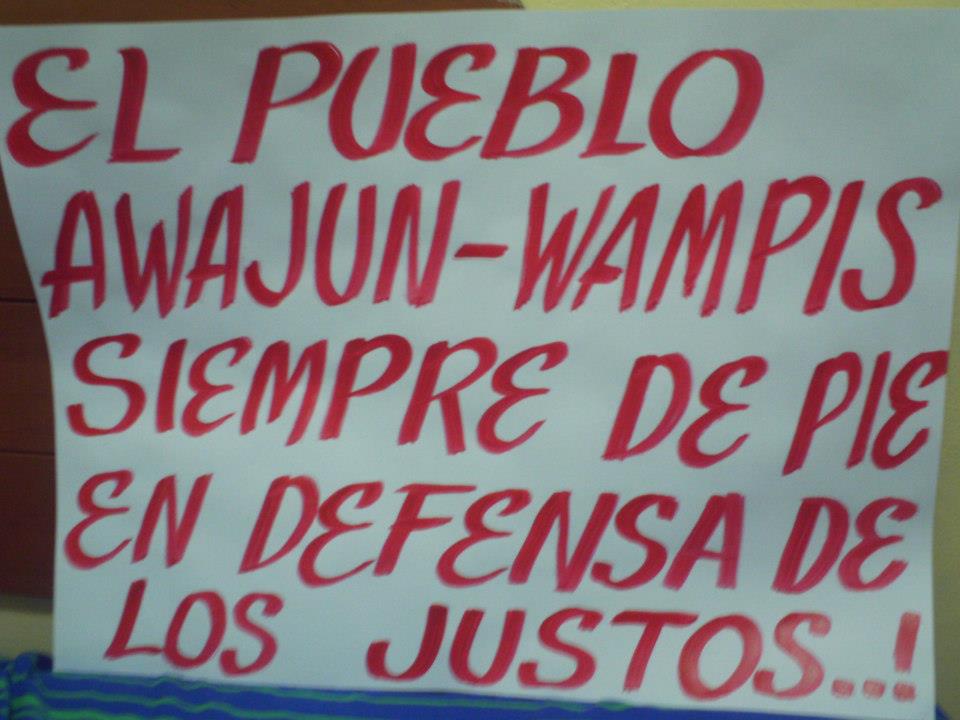 EL PUEBLO
AWAJUN-WAMPIS
SIEMPRE DE PIE
EN DEFENSA DE
LOS JUSTOS...!